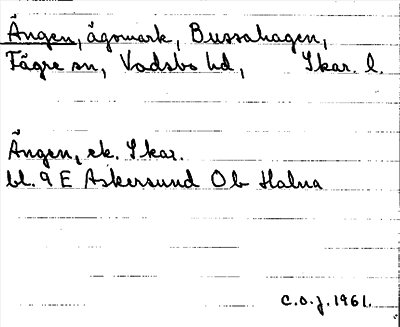 Ängen, ägomark, Bussahagen,
Fägre sn, Vadsbo hd, Skar. l.
Ängen, ek. Skar.
bl. 9 E Askersund Ob Halna
C.O.J. 1961.